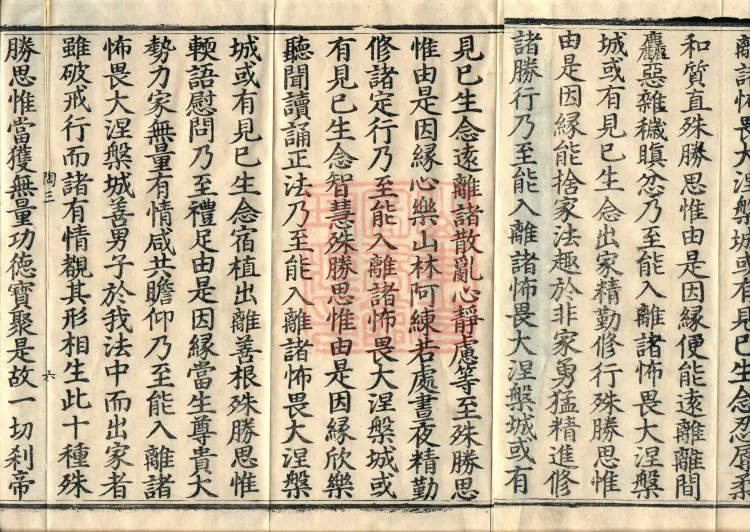 離諸怖畏大涅槃城或有見已生念忍辱柔
和質直殊勝思惟由是因緣便能遠離離間
麤惡雜穢瞋忿乃至能入離諸怖畏大涅槃
城或有見已生念出家精勤修行殊勝思惟
由是因緣能捨家法趣於非家勇猛精進修
諸勝行乃至能入離諸怖畏大涅槃城或有
見已生念遠離諸散亂心靜慮等至殊勝思
惟由是因緣心樂山林阿練若處晝夜精勤
修諸定行乃至能入離諸怖畏大涅槃城或
有見已生念智慧殊勝思惟由是因緣欣樂
聽聞讀誦正法乃至能入離諸怖畏大涅槃
城或有見已生念宿植出離善根殊勝思惟
輭語慰問乃至禮足由是因緣當生尊貴大
勢力家無量有情咸共瞻仰乃至能入離諸
怖畏大涅槃城善男子於我法中而出家者
雖破戒行而諸有情覩其形相生此十種殊
陶三 六
勝思惟當獲無量功德寶聚是故一切剎帝